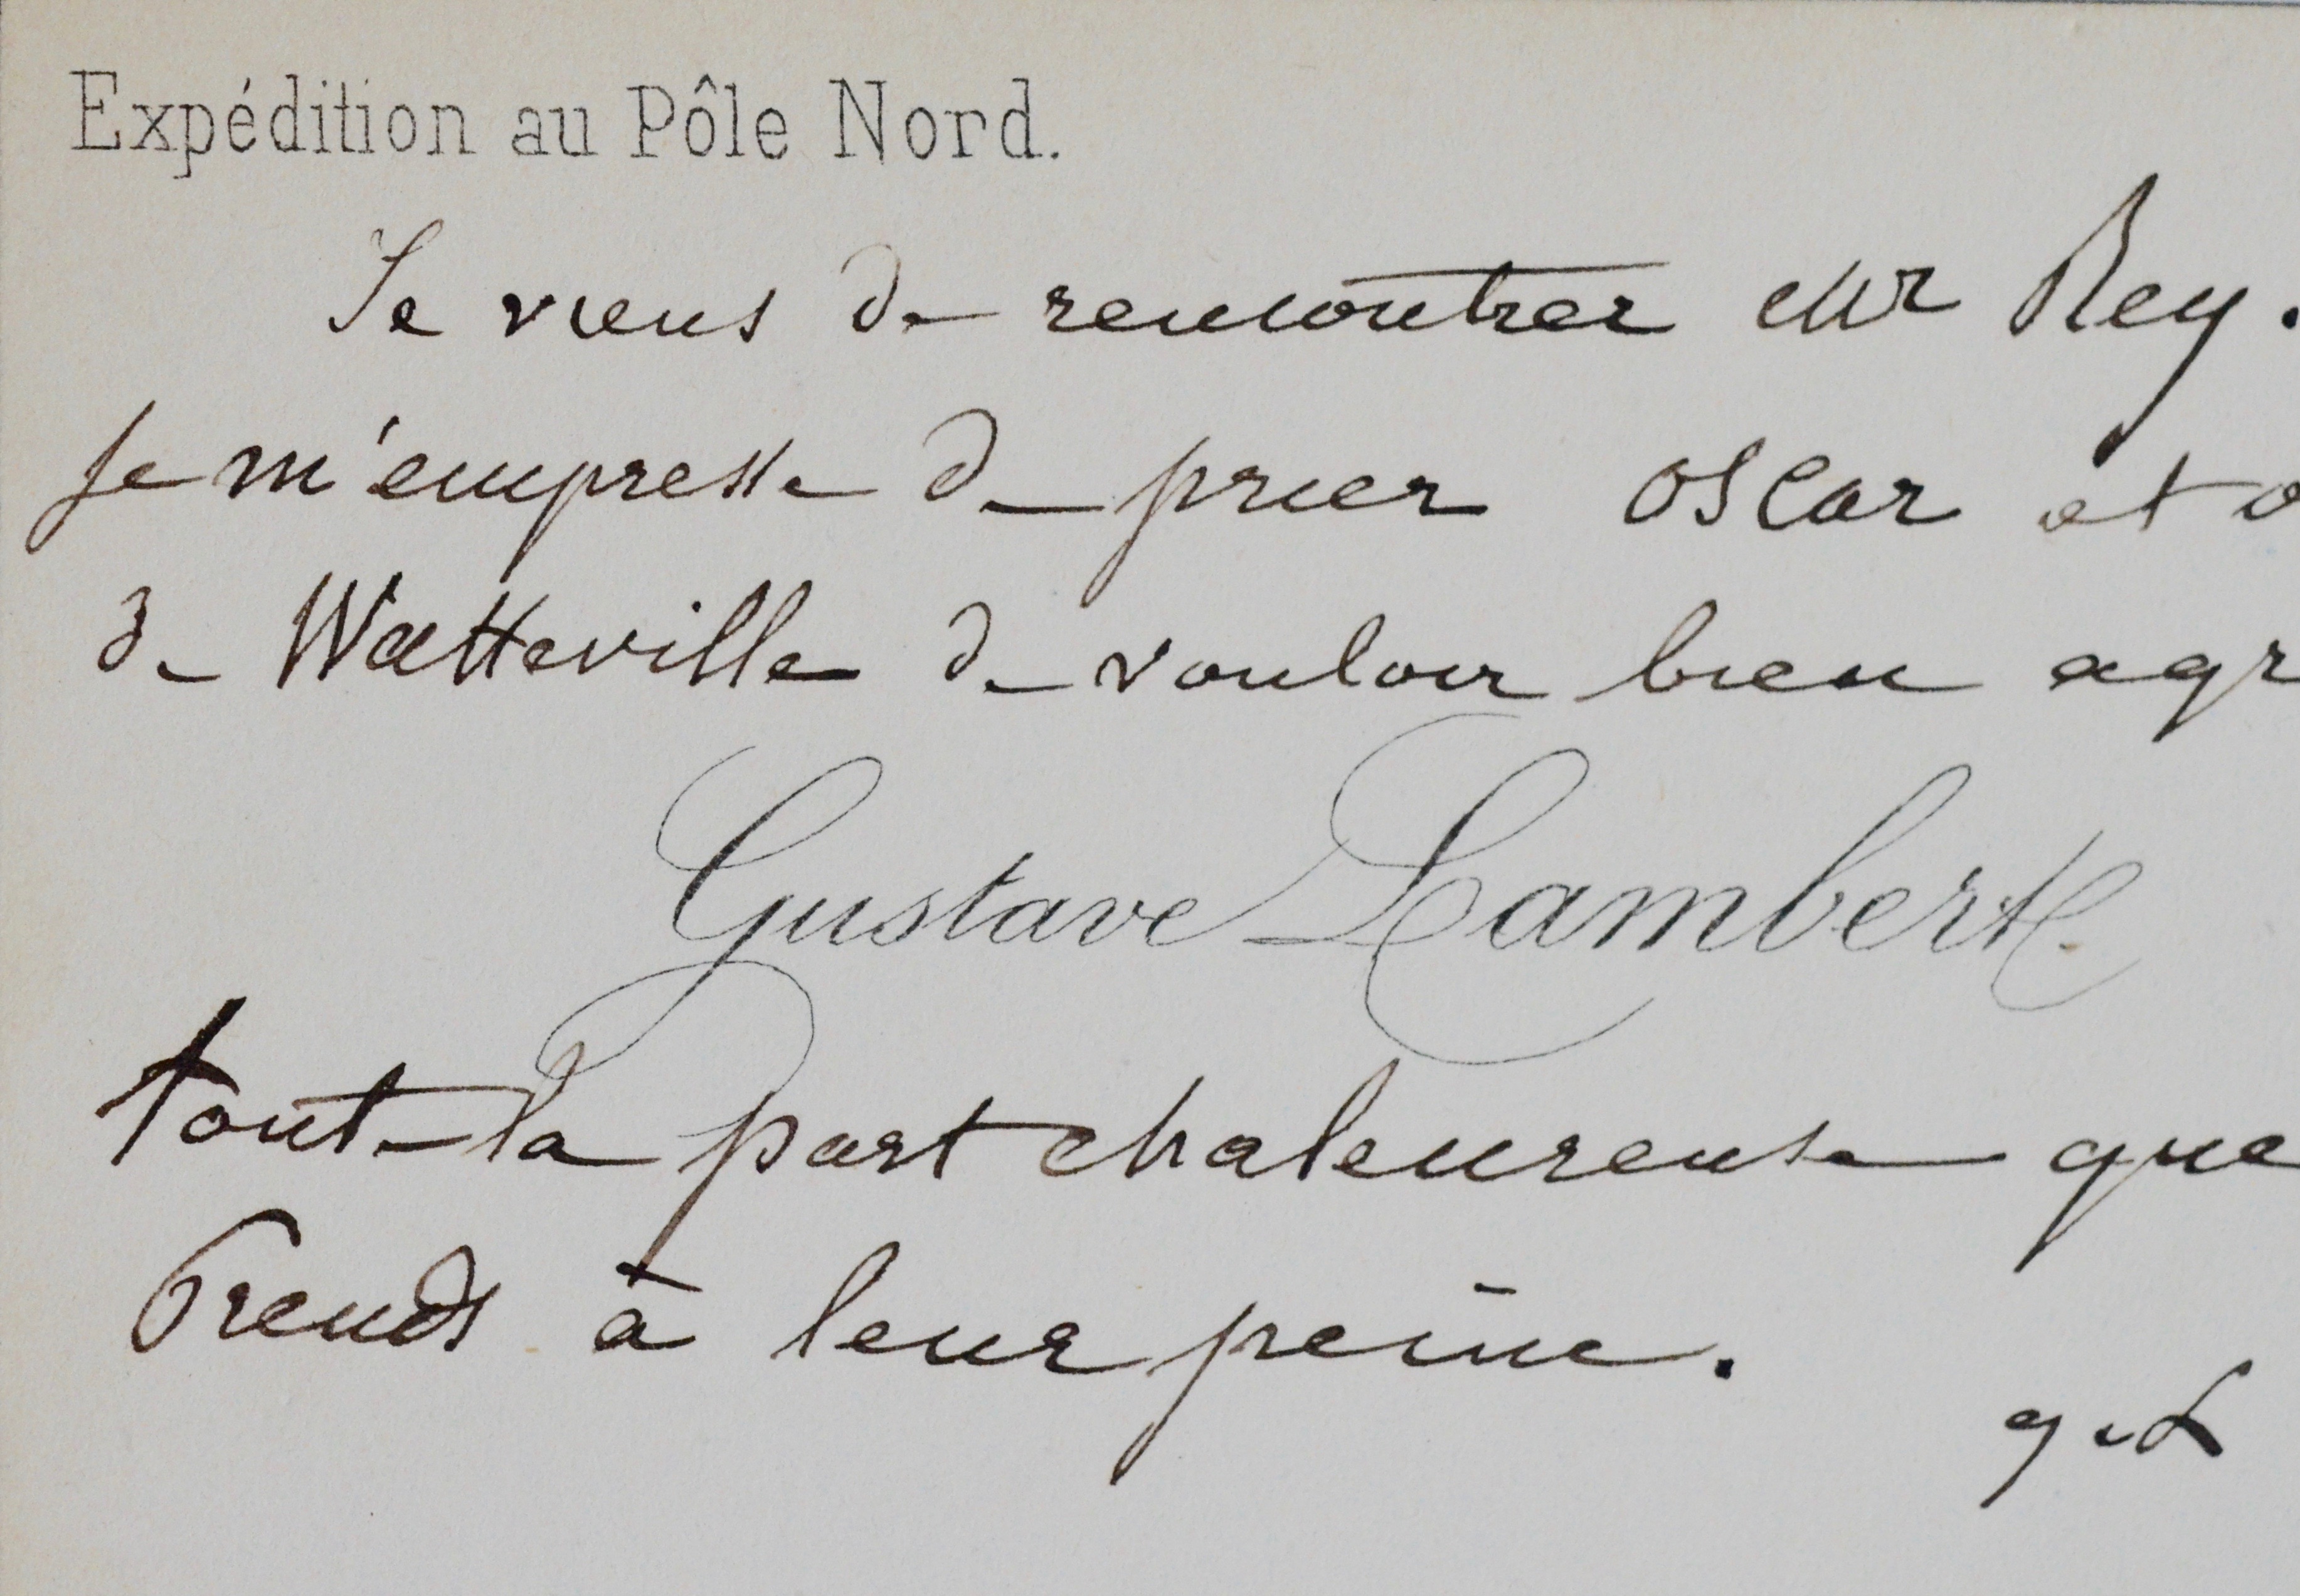 Expédition au Pôle Nord.
Je viens de rencontrer Mr Rey.
Je m'empresse de prier Oscar et
de Watteville de vouloir bien agr
Gustave Lambert
tout la part chaleureuse que
Prends à leur peine.
g.L